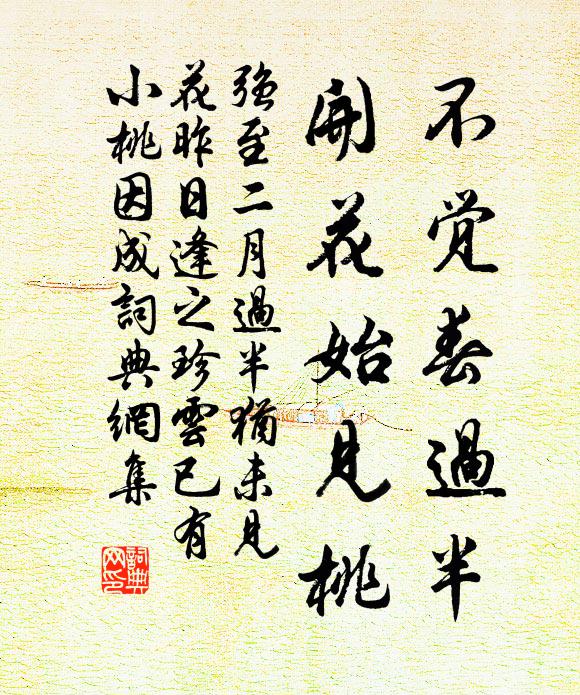 不觉春過半
開花始見桃
强至二月過半猶未見
花昨日逢之珍雲已有
小桃因成詞典網集
詞典网印